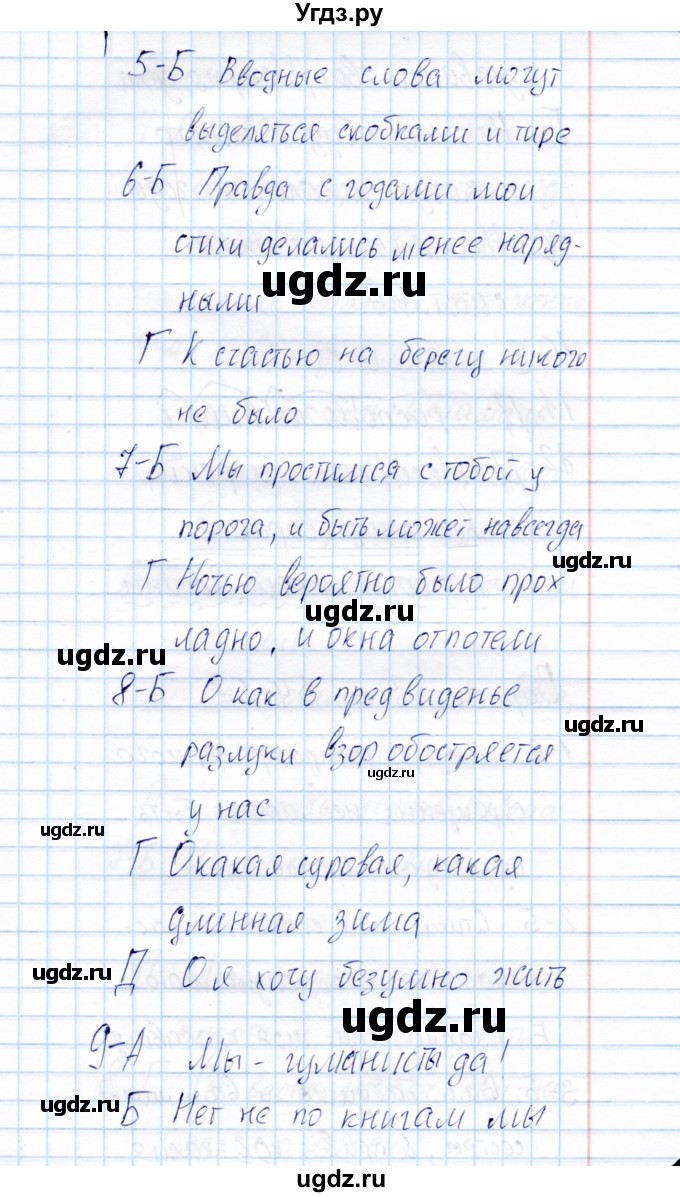 Угдз.ру
5-Б Вводные слова могут
выделяться скобками и тире
6-Б Правда с годами мои
стихи делались менее наряд-
ugdz.ru
ными
Г К счастью на берегу никого
не было
7-Б Мы простимся с тобой у
порога, и быть может навсегда
ugdz.ru
Г Ночью вероятно было прох
ugdz.ru
ладно, и окна отпотели
ugdz.ru
8-Б О как в предвиденье
ugdz.ru
разлуки взор обостряется
ugdz.ru
у нас
ugdz.ru
Г О какая суровая, какая
длинная зима
Д О я хочу безумно жить
ugdz.ru
ugdz.ru
9-А Мы - гуманисты да!
ugdz.ru
Б Нет не по книгам мы
ugdz.ru